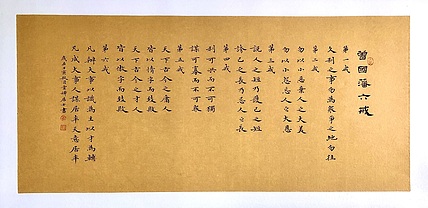 曾國藩六戒
第一戒
久利之事勿為眾爭之地勿往
第二戒
勿以小惡棄人之大美
勿以小怨忘人之大恩
第三戒
說人之短乃護己之短
誇己之長乃忌人之長
第四戒
利可共而不可獨
謀可寡而不可眾
第五戒
天下古今之庸人
皆以惰字而致敗
天下古今之才人
皆以傲字而致敗
第六戒
凡辦大事以識為主以才為輔
凡成大事人謀居半天意居半